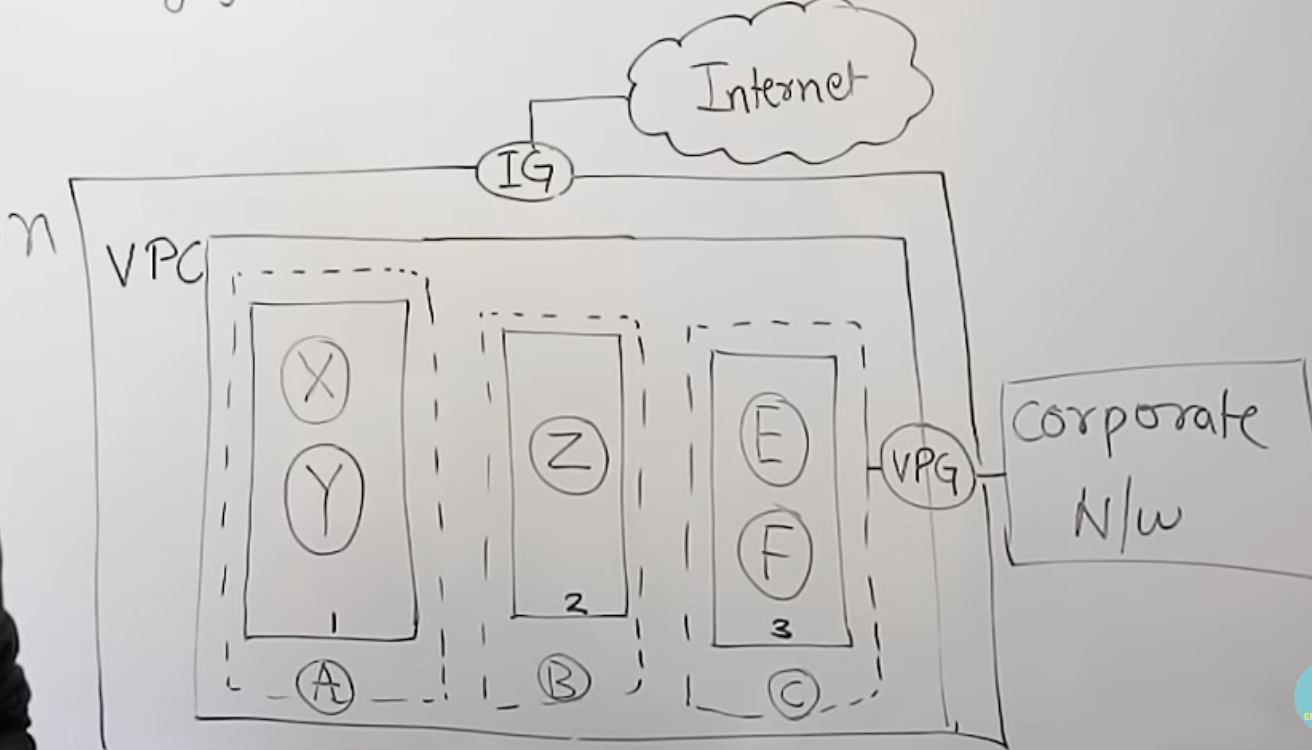 Internet
IG
n
VPC
X
Y
1
A
Z
2
B
E
F
3
C
VPG
Corporate
N/w